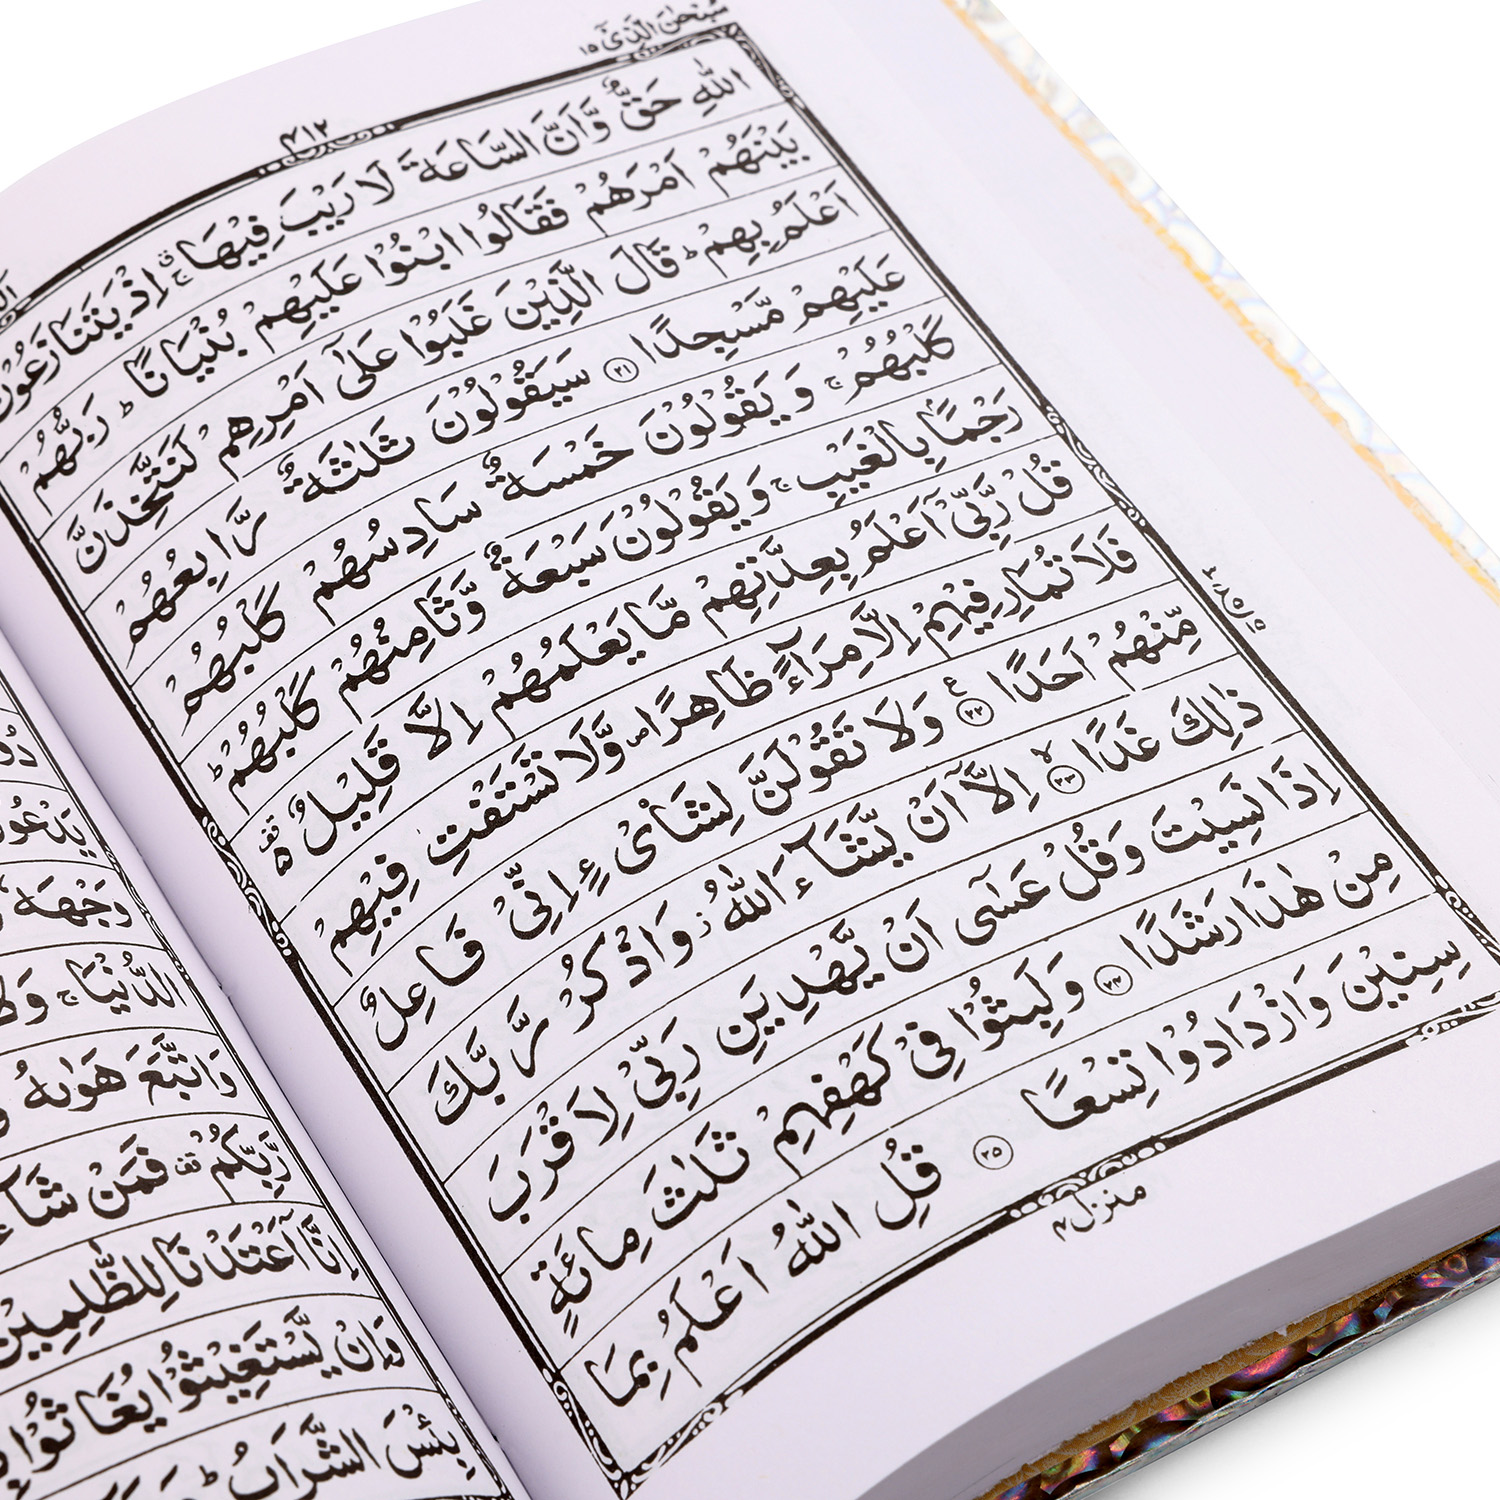 سبحٰن الّذىٓ ١٥
٤١٢
اللّٰهِ حَقٌّ وَّاَنَّ السَّاعَةَ لَا رَيْبَ فِيْهَا ۚ اِذْ يَتَنَازَعُوْنَ
بَيْنَهُمْ اَمْرَهُمْ فَقَالُوا ابْنُوْا عَلَيْهِمْ بُنْيَانًا ؕ رَبُّهُمْ
اَعْلَمُ بِهِمْ ؕ قَالَ الَّذِيْنَ غَلَبُوْا عَلٰٓى اَمْرِهِمْ لَنَتَّخِذَنَّ
عَلَيْهِمْ مَّسْجِدًا ۝٢١ سَيَقُوْلُوْنَ ثَلٰثَةٌ رَّابِعُهُمْ
كَلْبُهُمْ ۚ وَيَقُوْلُوْنَ خَمْسَةٌ سَادِسُهُمْ كَلْبُهُمْ
رَجْمًۢا بِالْغَيْبِ ۚ وَيَقُوْلُوْنَ سَبْعَةٌ وَّثَامِنُهُمْ كَلْبُهُمْ ؕ
قُلْ رَّبِّىْٓ اَعْلَمُ بِعِدَّتِهِمْ مَّا يَعْلَمُهُمْ اِلَّا قَلِيْلٌ
فَلَا تُمَارِ فِيْهِمْ اِلَّا مِرَآءً ظَاهِرًا ۪ وَّلَا تَسْتَفْتِ فِيْهِمْ
مِّنْهُمْ اَحَدًا ۝٢٢ وَلَا تَقُوْلَنَّ لِشَاىْءٍ اِنِّىْ فَاعِلٌ
ذٰلِكَ غَدًا ۝٢٣ اِلَّآ اَنْ يَّشَآءَ اللّٰهُ ؗ وَاذْكُرْ رَّبَّكَ
اِذَا نَسِيْتَ وَقُلْ عَسٰٓى اَنْ يَّهْدِيَنِ رَبِّىْ لِاَقْرَبَ
مِنْ هٰذَا رَشَدًا ۝٢٤ وَلَبِثُوْا فِىْ كَهْفِهِمْ ثَلٰثَ مِائَةٍ
سِنِيْنَ وَازْدَادُوْا تِسْعًا ۝٢٥ قُلِ اللّٰهُ اَعْلَمُ بِمَا
منزل ٤
وَجْهَهٗ
الدُّنْيَا ۚ
وَاتَّبَعَ هَوٰىهُ
رَّبِّكُمْ فَمَنْ شَآءَ
اِنَّآ اَعْتَدْنَا لِلظّٰلِمِيْنَ
وَاِنْ يَّسْتَغِيْثُوْا يُغَاثُوْا
بِئْسَ الشَّرَابُ ؕ